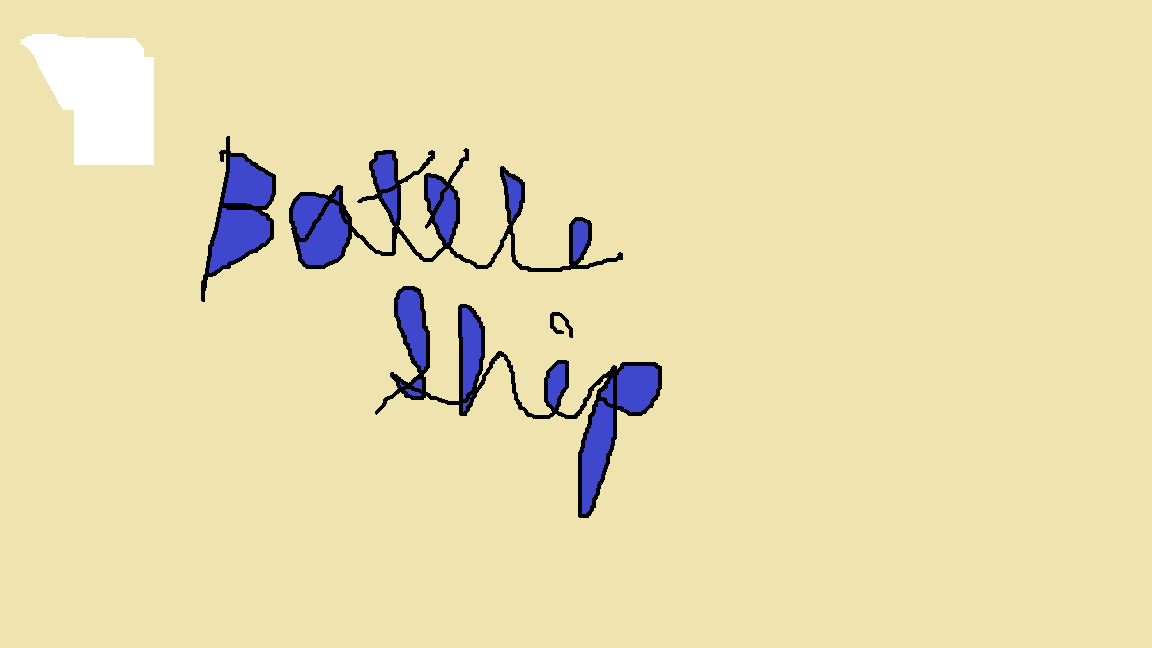 Battle
ship